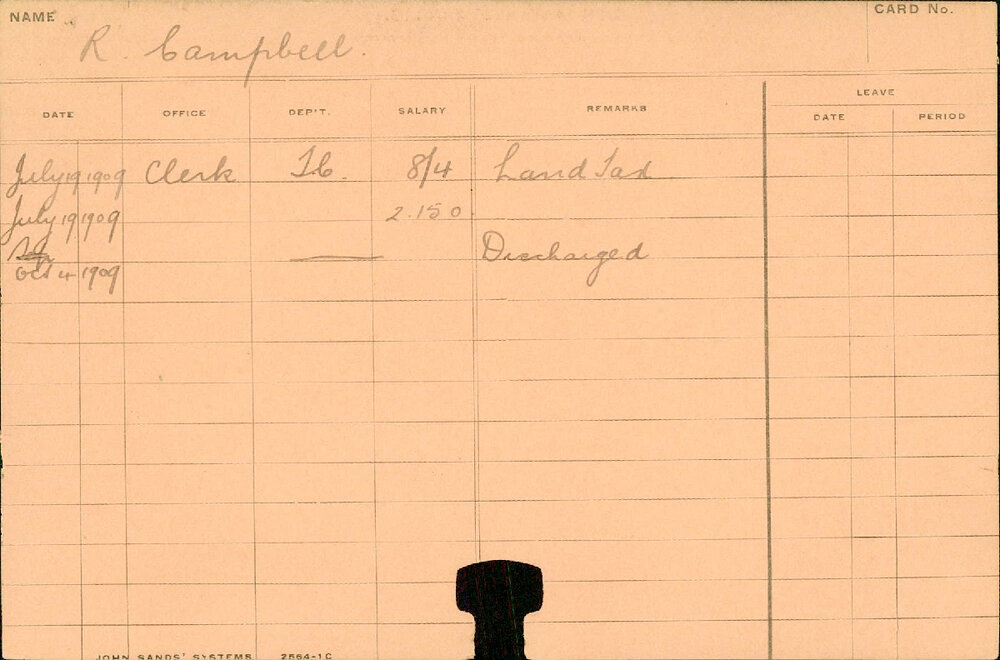 NAME
CARD No.
R. Campbell.
DATE OFFICE DEP'T. SALARY REMARKS LEAVE
DATE PERIOD
July 19 1909 Clerk T.C. 8/4 Land Tax
July 19 1909 2.15 0
Discharged
Oct 4 1909
JOHN SANDS' SYSTEMS 2564-1C